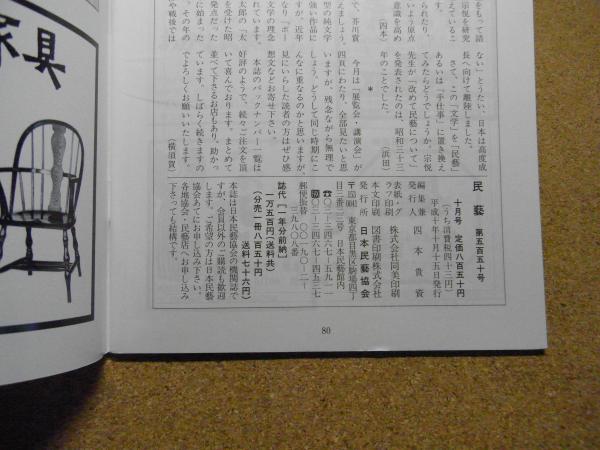 をもって語
宗悦を研究
えているこ
られたり、
いよう原点
意識を高め
(四本)
で、芥川賞
えましょう。
型の純文学
強い作品に
すが、近年
なり「ポー
文学の理念
れています。
太郎の『太
を受けた昭
発売だった
に始まった
。その年の
や戦後では
ない」とうたい、日本は高度成
長へ向けて離陸しました。
さて、この「文学」を「民藝」
あるいは「手仕事」に置き換え
てみたらどうでしょうか。宗悦
先生が「改めて民藝について」
を発表されたのは、昭和三十三
年のことでした。
(浜田)
*
今月は「展覧会・講演会」が
四頁にわたり、全部見たいと思
いますが、残念ながら無理で
しょう。どうして同じ時期にこ
んなに重なるのかと思いますが、
見にいらした読者の方はぜひ感
想文などお寄せ下さい。
本誌のバックナンバー一覧は
好評のようで、続々ご注文を頂
いて喜んでおります。まとめて
並べて下さるお店もあり、助かっ
ています。しばらく続きますの
でよろしくお願いいたします。
(横須賀)
民藝 第五百五十号
十月号 定価八百五十円
(うち消費税四十三円)
平成十年十月十五日発行
編集兼
発行人 四本貴資
表紙・グ
ラフ印刷 株式会社同美印刷
本文印刷 図書印刷株式会社
発行所 日本民藝協会
東京都目黒区駒場四丁
目三番三三号 日本民藝館内
☎〇三-三四六七-五九一一
〇三-三四六七-四五三七
郵便振替 〇〇一九〇-二-
一三九八八番
誌代〔一年分前納〕
一万五百円(送料共)
(分売)一冊八百五十円
送料七十六円)
本誌は日本民藝協会の機関誌で
すが、会員以外のご購読も歓迎
します。ご希望の方は日本民藝
協会あてにお申し込み下さい。
各地協会・民藝店へお申し込み
下さっても結構です。
80
家具